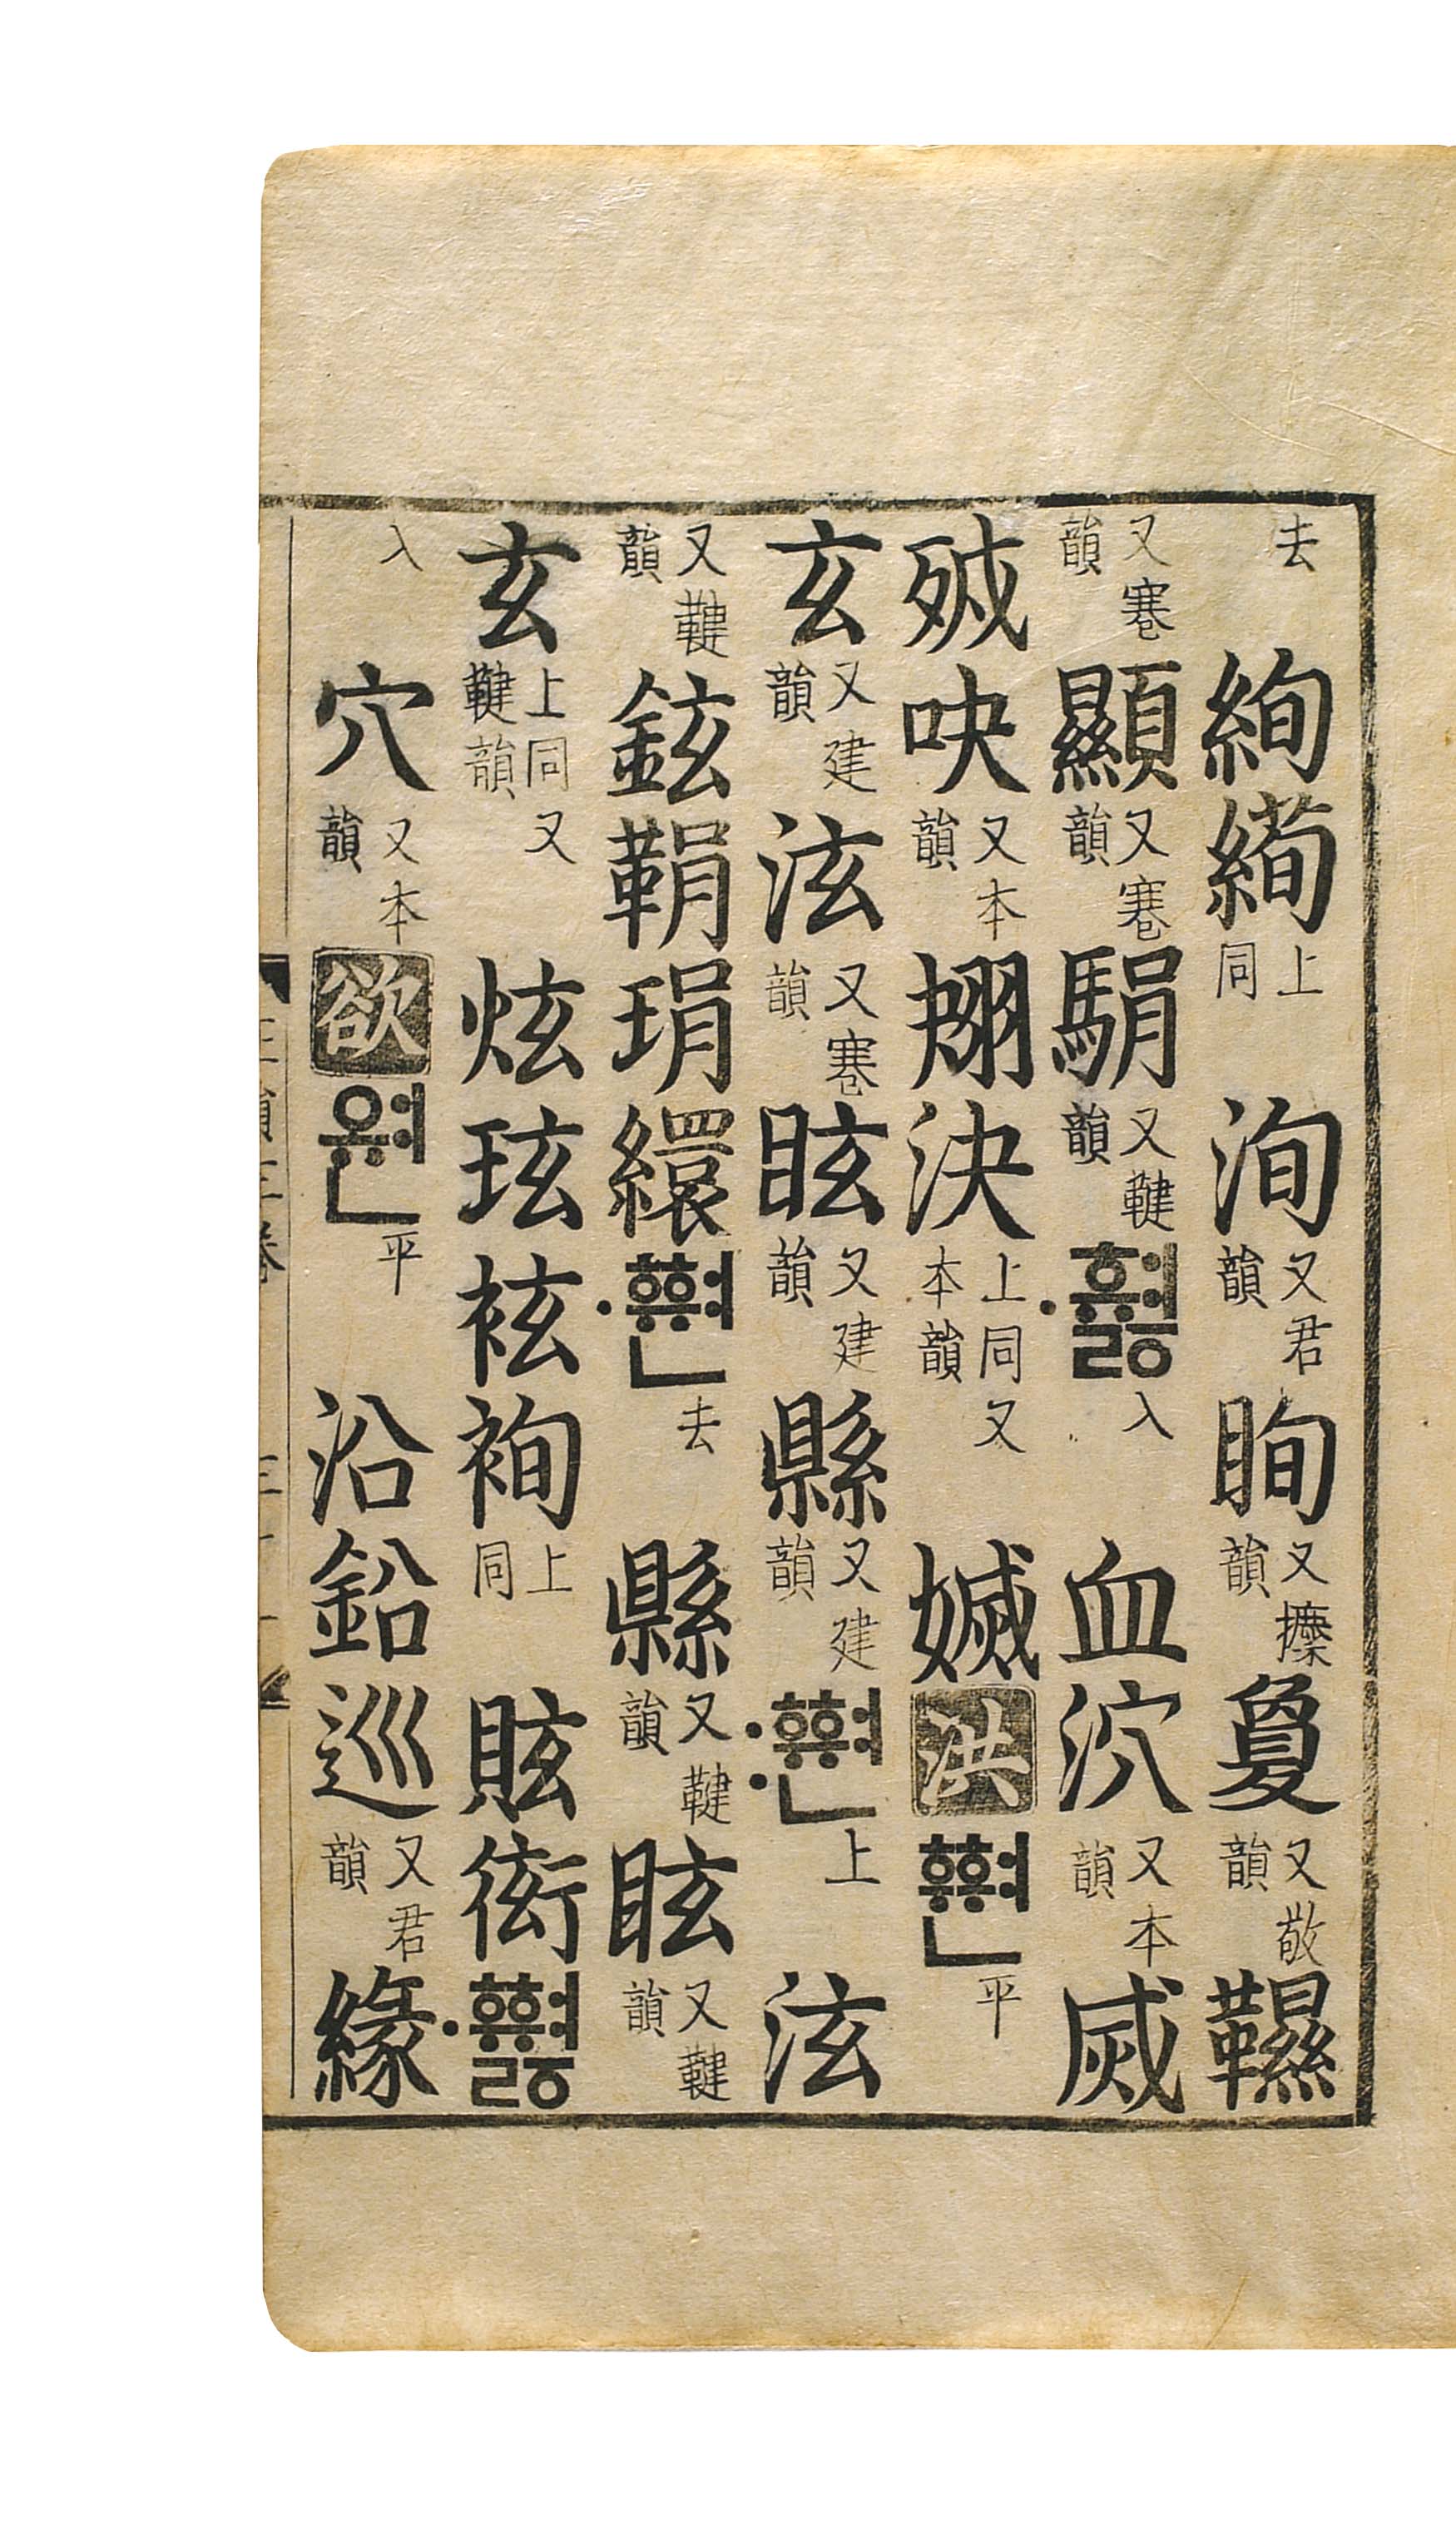 去 絢 上同 洵 又君韻 眴 又攗韻 夐 又敬韻 韅
又寋韻 顯 又寋韻 駽 又鞬韻 ·ᄒᆑᇙ 入 血 泬 又本韻 烕
吷 又本韻 決 上同又本韻 洪 ᅘᆑᆫ 平
玄 又建韻 泫 又寋韻 眩 又建韻 縣 又建韻 :ᅘᆑᆫ 上 泫
又鞬韻 鉉 鞙 琄 繯 ·ᅘᆑᆫ 去 縣 又鞬韻 眩 又鞬韻
玄 上同又鞬韻 炫 玹 袨 上同 衒 ·ᅘᆑᇙ
入 穴 又本韻 欲 ᄋᆑᆫ 平 沿 鉛 巡 又君韻 緣